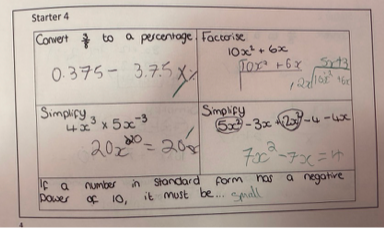 Starter 4
Convert 3/8 to a percentage.
0.375 - 3.75 %
Factorise
10x² + 6x
10x² + 6x
5x+3
2x 10x² 6x
Simplify
4x³ × 5x⁻³
20x⁰ = 20x
Simplify
5x² -3x +2x² -4 -4x
7x² -7x = 4
If a number in standard form has a negative
power of 10, it must be... small